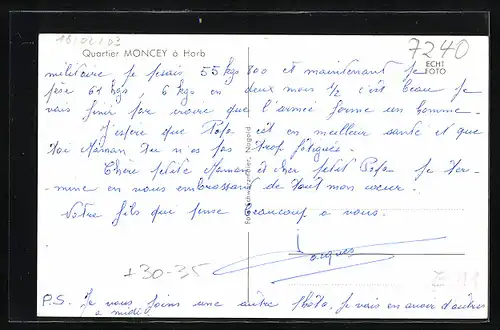 7240
Quartier MONCEY à Horb
ECHT
FOTO
militaire je pesais 55 kgs 800 et maintenant je
pèse 61 kgs, 6 kgs en deux mois 1/2 c'est beau je
vais finir par croire que l'armée forme un homme.
J'espère que Papa est en meilleur santé et que
toi Maman tu n'es pas trop fatiguée.
Chère petite Maman et cher petit Papa je ter-
mine en vous embrassant de tout mon coeur.
Votre fils qui pense beaucoup a vous.
Jacques
+30-35
P.S. Je vous joins une autre photo, je vais en avoir d'autres
a midi